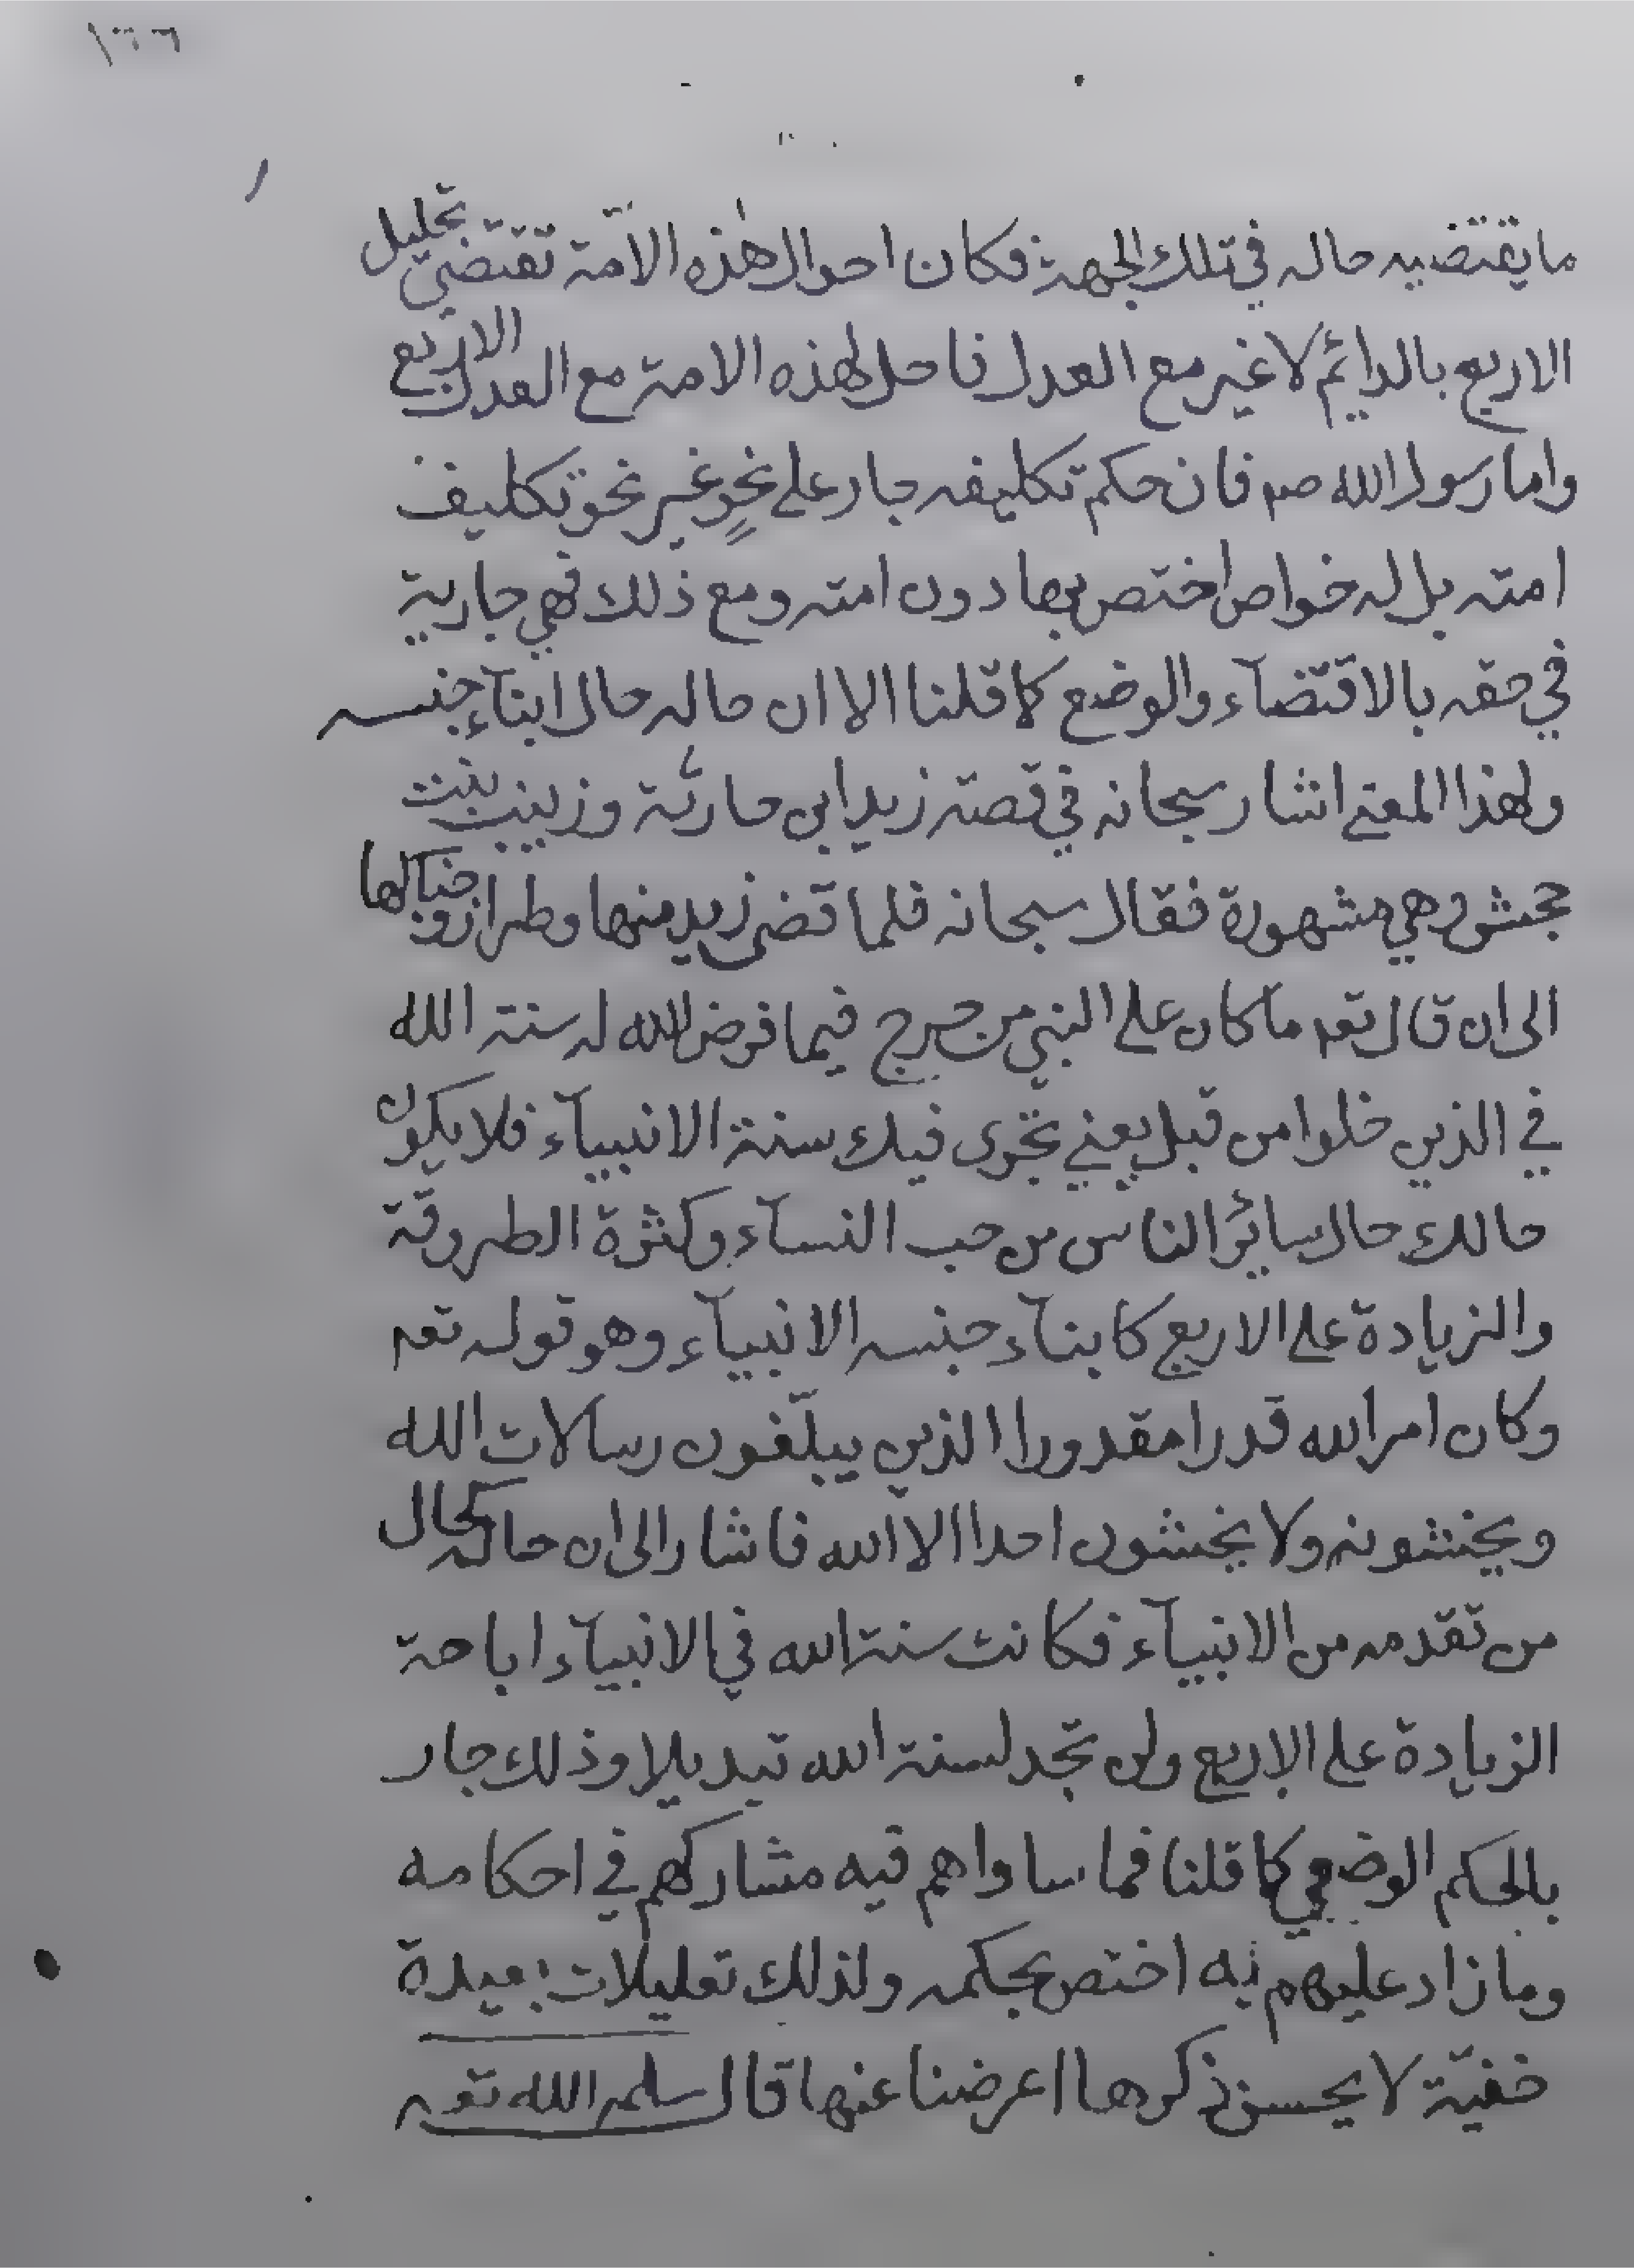 ما يقتضيه حاله في تلك الجهة فكان احوال هذه الامّة تقتضي تحليل
الاربع بالدائم لا غير مع العدل فاحل لهذه الامة مع العدل الاربع
واما رسول الله صم فان حكم تكليفه جار على نحوٍ غير نحو تكليف
امته بل له خواص اختص بها دون امته ومع ذلك فهي جارية
في حقه بالاقتضآء والوضع كا قلنا الا ان حاله حال ابنآء جنسه
ولهذا المعنى اشار سبحانه في قصة زيد ابن حارثة وزينب بنت
جحش وهي مشهورة فقال سبحانه فلما قضى زيد منها وطرا زوجناكها
الى ان قال تعه ما كان على النبي من حرج فيما فرض الله له سنة الله
في الذين خلوا من قبل يعني تجرى فيك سنة الانبيآء فلا يكون
حالك حال سائر الناس من حب النسآء وكثرة الطروقة
والزيادة على الاربع كابنآء جنسه الانبيآء وهو قوله تعه
وكان امر الله قدرا مقدورا الذين يبلّغون رسالات الله
ويخشونه ولا يخشون احدا الا الله فاشار الى ان حاله كحال
من تقدمه من الانبيآء فكانت سنة الله في الانبيآء اباحة
الزيادة على الاربع ولن تجد لسنة الله تبديلا وذلك جار
بالحكم الوضعي كا قلنا فما ساواهم فيه مشاركهم في احكامه
وما زاد عليهم به اختص بحكمه ولذلك تعليلات بعيدة
خفيّة لا يحسن ذكرها اعرضنا عنها قال سلمه الله تعه